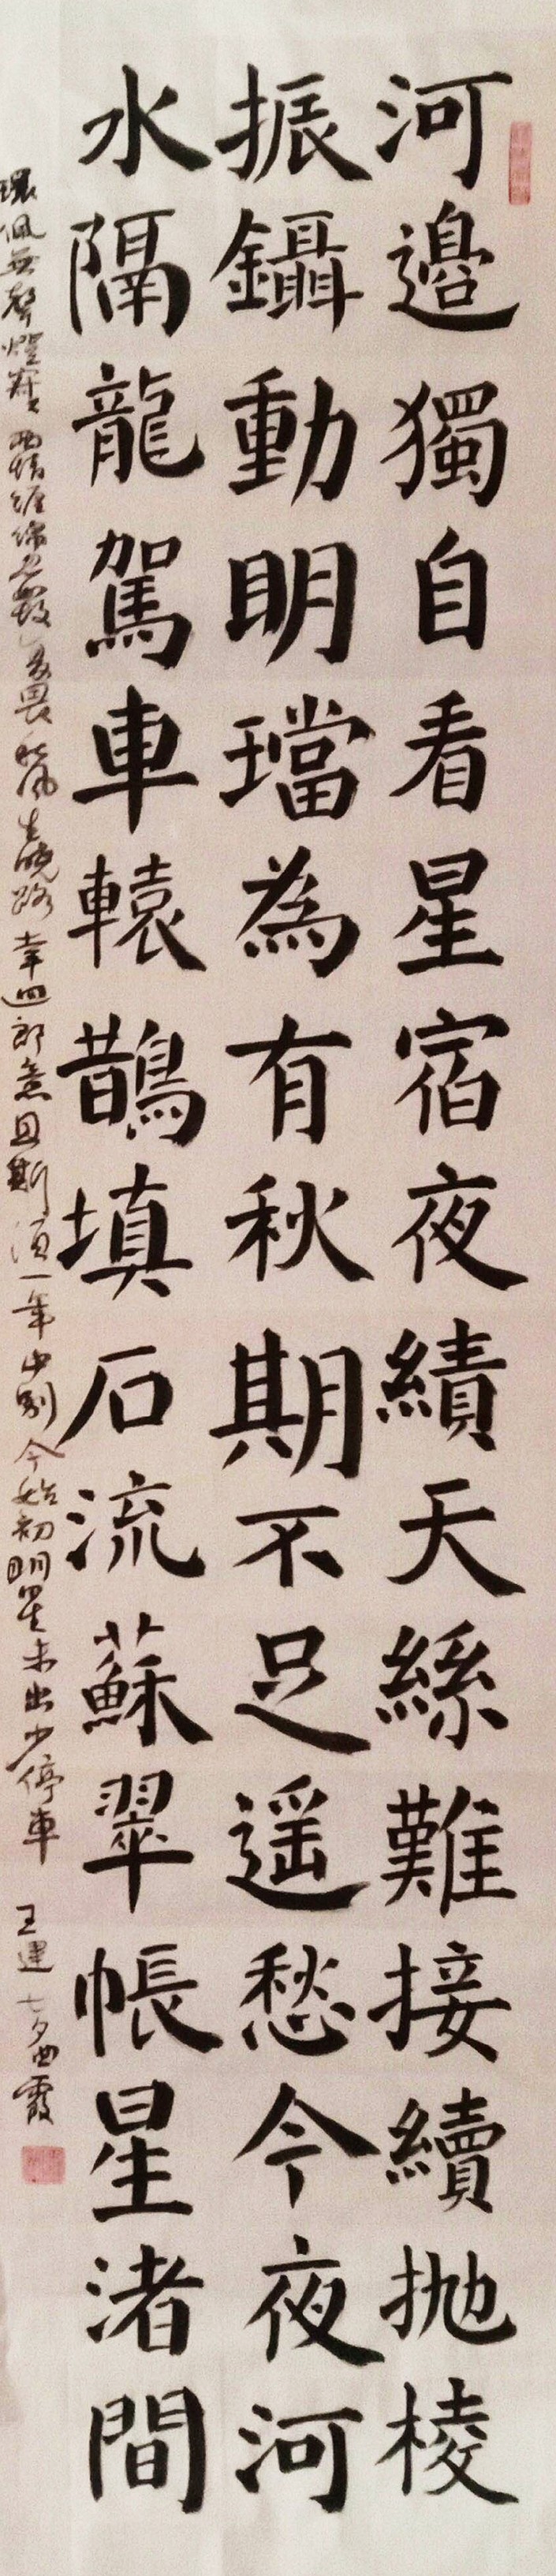 河邊獨自看星宿夜績天絲難接續抛棱
振鑷動明璫為有秋期不足遥愁今夜河
水隔龍駕車轅鵲填石流蘇翠帳星渚間
環佩無聲燈寂寂兩情纏綿忽如故復畏秋風生曉路幸迴郎意且斯須一年中別今始初明星未出少停車 王建七夕曲霞